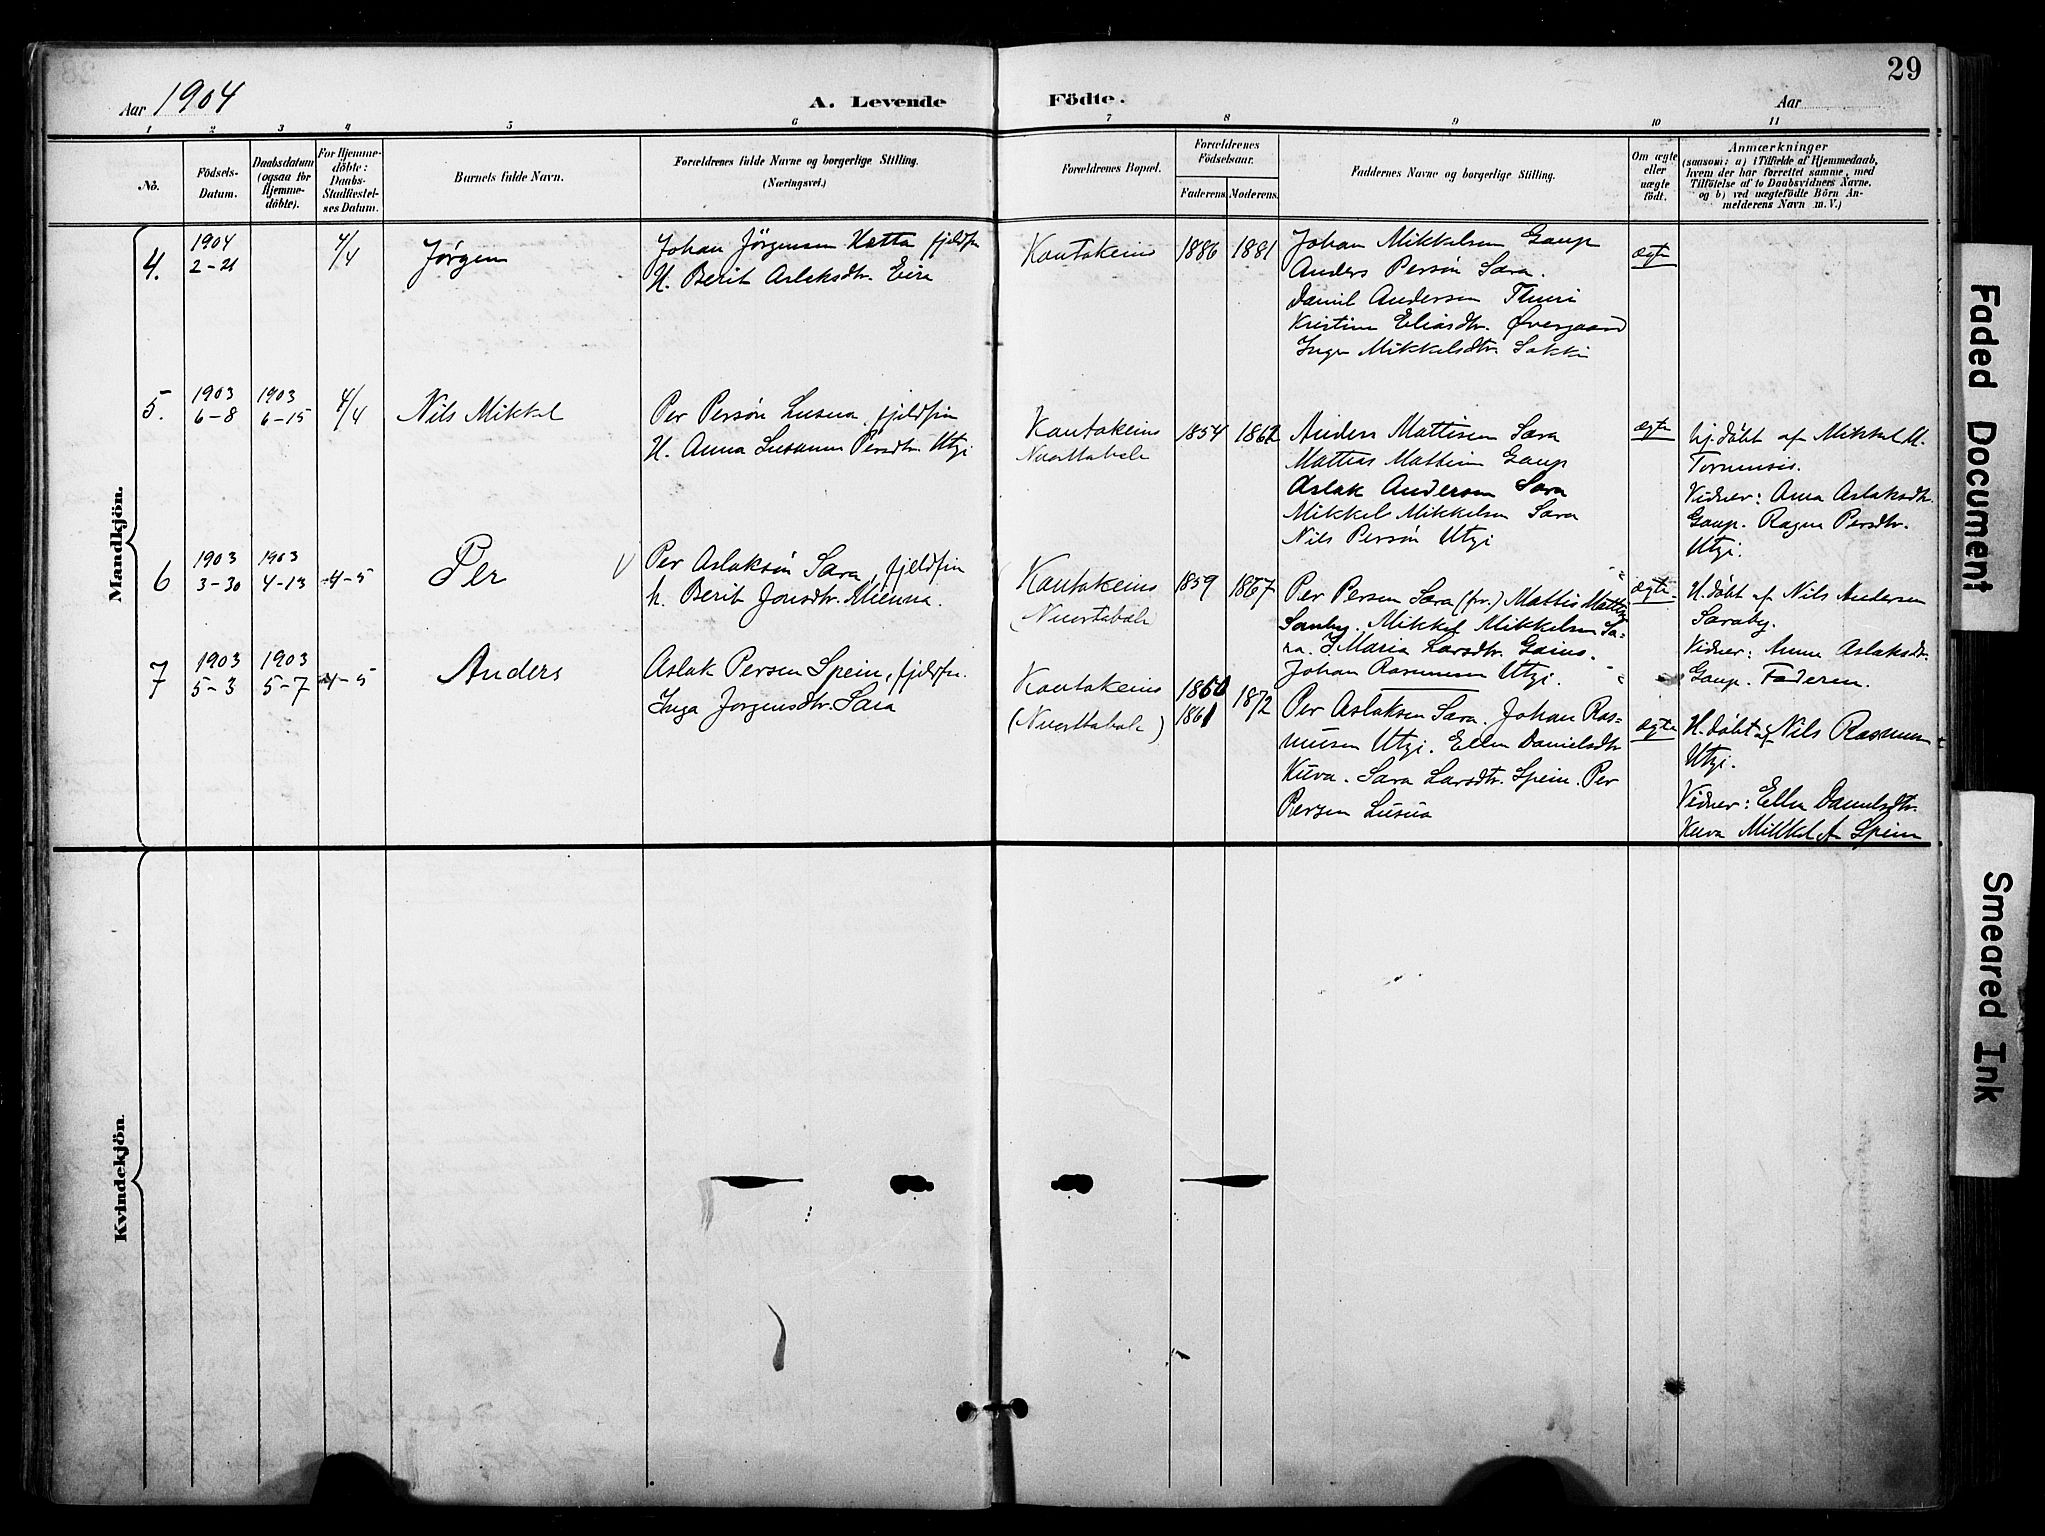 29
Aar 1904
A. Levende Födte.
Aar
1 2 3 4 5 6 7 8 9 10 11
No.
Födsels-
Datum.
Daabsdatum
(ogsaa for
Hjemme-
döbte).
For Hjemme-
döbte:
Daabs-
Stadfæstel-
ses Datum.
Barnets fulde Navn.
Forældrenes fulde Navne og borgerlige Stilling.
(Næringsvei.)
Forældrenes Bopæl.
Forældrenes
Födselsaar.
Faderens. Moderens.
Faddernes Navne og borgerlige Stilling.
Om ægte
eller
uægte
födt.
Anmærkninger
(saasom: a) i Tilfælde af Hjemmedaab,
hvem der har forrettet samme, med
Tilföielse af to Daabsvidners Navne.
og b) ved uægtefödte Börn An-
melderens Navn m. V.)
Mandkjön.
4.
1904
2-21
4/4
Jørgen
Johan Jørgensen Hætta fjeldfin
H. Berit Aslaksdtr. Eira
Kautokeino
1886 1881
Johan Mikkelsen Gaup
Anders Persøn Sara.
Daniel Andersen Thuri
Kristine Eliasdtr. Øvergaard
Inger Mikkelsdtr. Sokki
ægte
5.
1903
6-8
1903
6-15
4/4
Nils Mikkel
Per Persøn Lusua, fjeldfin
H. Anna Susanna Persdtr. Utzi
Kautokeino
Nuorttabele
1854 1862
Anders Mattisen Sara
Mathis Mathisen Gaup
Aslak Andersen Sara
Mikkel Mikkelsen Sara
Nils Persøn Utzi
ægte
Hj.døbt af Mikkel M.
Tornensis.
Vidner: Anna Aslaksdtr.
Gaup. Ragna Persdtr.
Utzi.
6
1903
3-30
1903
4-13
4-5
Per
V
Per Aslaksøn Sara, fjeldfin
h. Berit Jonsdtr. Mienna.
Kautokeino
(Nuortabele
1859 1867
Per Persen Sara (fr.) Mattis Matthis
Saraby. Mikkel Mikkelsen Sa-
ra. I Maria Larsdtr. Gaino.
Johan Rasmusen Utzi.
ægte
H.døbt af Nils Andersen
Saraby.
Vidner: Anne Aslaksdtr.
Gaup. Faderen.
7
1903
5-3
1903
5-7
4-5
Anders
Aslak Persen Spein, fjeldfin.
Inga Jørgensdtr. Sara
Kautokeino
(Nuorttabele)
1860
1861
1872
Per Aslaksen Sara. Johan Ras-
musen Utzi. Ellen Danielsdtr
Kuva. Sara Larsdtr. Spein. Per
Persen Lusua
ægte
H.døbt af Nils Rasmusen
Utzi.
Vidner: Ellen Danielsdtr.
Kuva Mikkel A Spein
Kvindekjön.
Faded Document
Smeared Ink